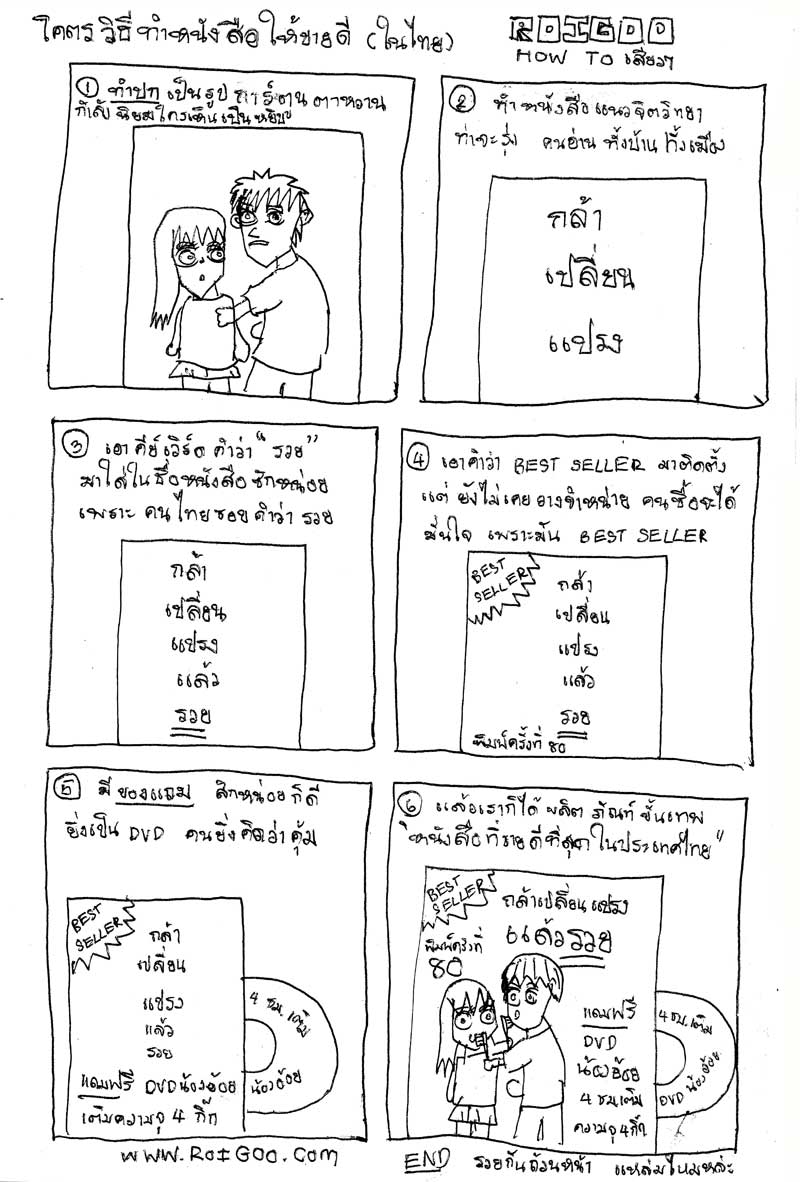 โคตรวิธีทำหนังสือให้ขายดี (ในไทย)
ROIGOO
HOW TO เสียวๆ
① ทำปก เป็นรูป การ์ตูน ตาหวาน
กำลังนิยมใครเห็นเป็นหยิบ
② ทำหนังสือแนวจิตวิทยา
ท่าจะรุ่ง คนอ่าน ทั้งบ้าน ทั้งเมือง
กล้า
เปลี่ยน
แปรง
③ เอาคีย์เวิร์ด คำว่า "รวย"
มาใส่ในชื่อหนังสือซักหน่อย
เพราะ คนไทยชอบคำว่า รวย
กล้า
เปลี่ยน
แปรง
แล้ว
รวย
④ เอาคำว่า BEST SELLER มาติดตั้ง
แต่ยังไม่เคยวางจำหน่าย คนซื้อจะได้
มั่นใจ เพราะมัน BEST SELLER
BEST
SELLER
กล้า
เปลี่ยน
แปรง
แล้ว
รวย
พิมพ์ครั้งที่ 80
⑤ มีของแถม สักหน่อยก็ดี
ยิ่งเป็น DVD คนยิ่งคิดว่าคุ้ม
BEST
SELLER
กล้า
เปลี่ยน
แปรง
แล้ว
รวย
แถมฟรี DVD น้องอ้อย
เต็มความจุ 4 กิ๊ก
4 ชม. เต็ม
น้องอ้อย
⑥ แล้วเราก็ได้ ผลิตภัณฑ์ ชั้นเทพ
"หนังสือที่ขายดีที่สุดในประเทศไทย"
BEST
SELLER
กล้าเปลี่ยนแปรง
แล้วรวย
พิมพ์ครั้งที่
80
แถมฟรี
DVD
น้องอ้อย
4 ชม. เต็ม
ความจุ 4 กิ๊ก
4 ชม. เต็ม
DVD น้องอ้อย
WWW.ROIGOO.COM
END รวยกันถ้วนหน้า แหล่มไหมหล่ะ